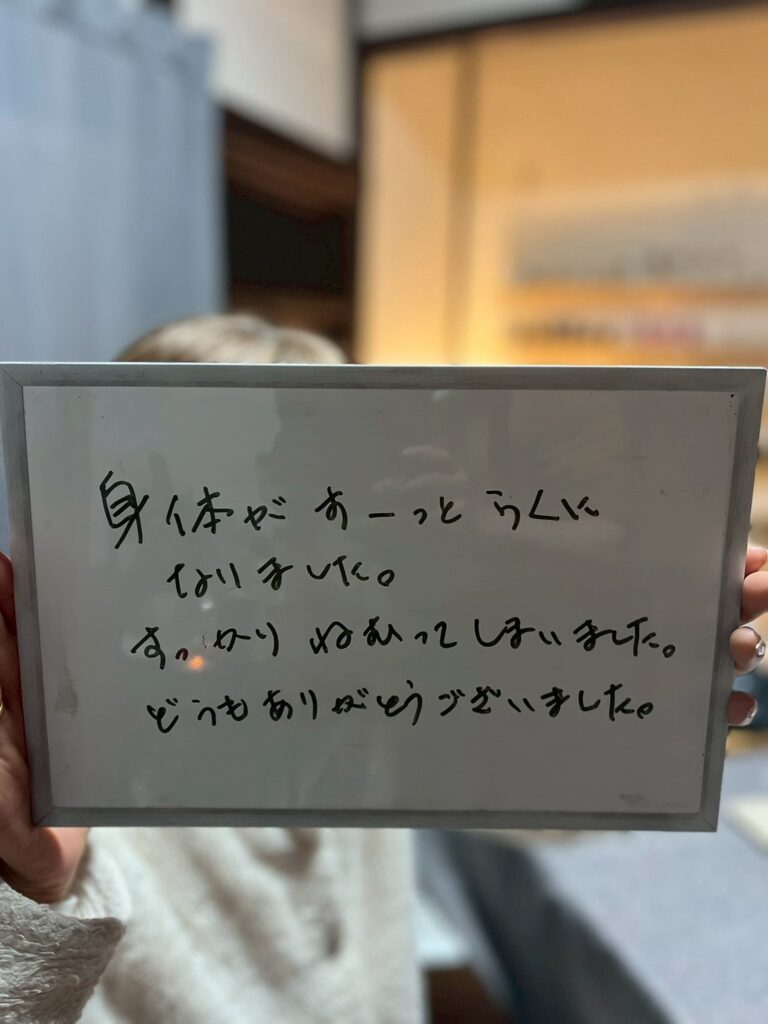 身体がすーっとらくに
なりました。
すっかりねむってしまいました。
どうもありがとうございました。